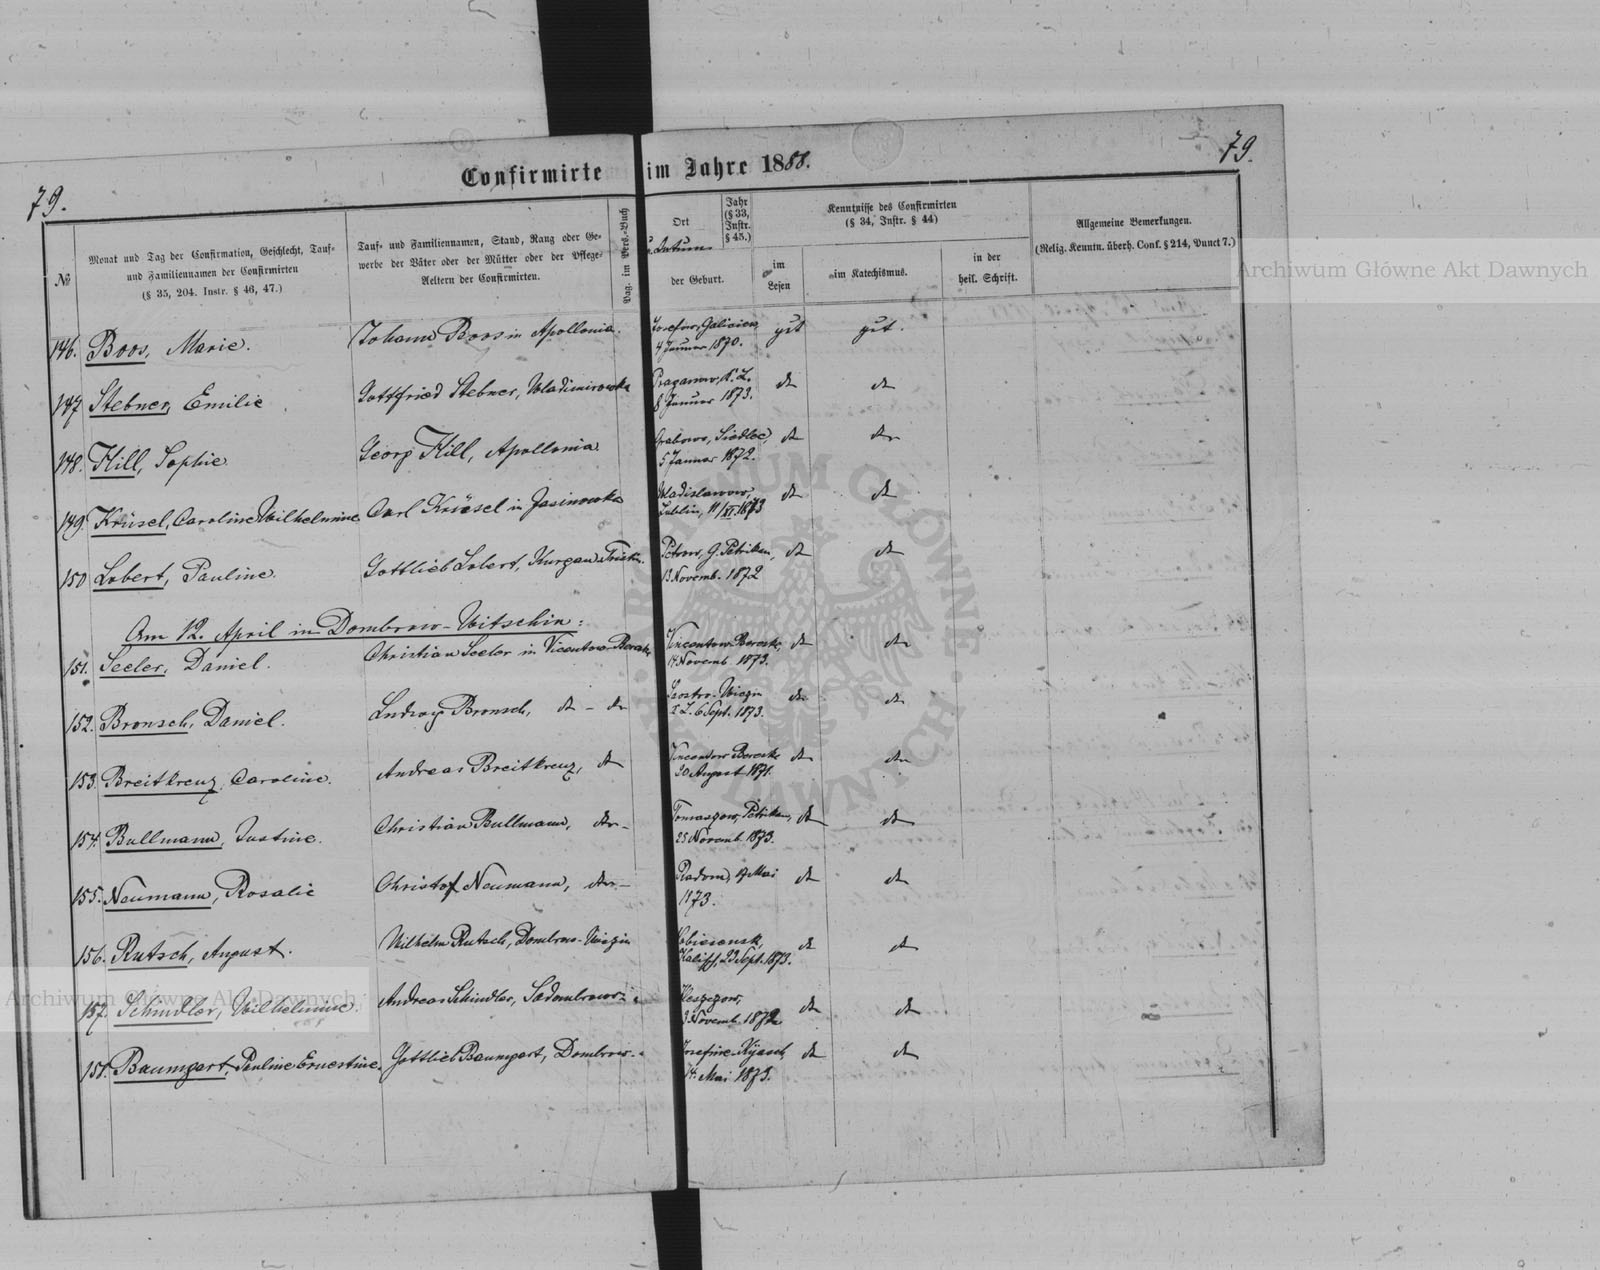 79.
79.
Confirmirte im Jahre 1888.
No
Monat und Tag der Confirmation, Geschlecht, Tauf-
und Familiennamen der Confirmirten
(§ 35, 204. Instr. § 46, 47.)
Tauf- und Familiennamen, Stand, Rang oder Ge-
werbe der Väter oder der Mütter oder der Pflege-
Aeltern der Confirmirten.
Pag. im Pers.-Buch
Ort
Datum
der Geburt.
Jahr
(§ 33,
Instr.
§ 45.)
Kenntnisse des Confirmirten
(§ 34, Instr. § 44)
im
Lesen
im Katechismus.
in der
heil. Schrift.
Allgemeine Bemerkungen.
(Relig. Kenntn. überh. Conf. § 214, Punct 7.)
146. Boos, Marie. Johann Boos in Apollonia. Josefow, Galizien gut gut.
4 Januar 1870.
147 Stebner, Emilie Gottfried Stebner, Wladimirowka do do
8 Januar 1873.
148. Hill, Sophie Georg Hill, Apollonia Grabowo, Siedlec, do do
5 Januar 1872.
149. Krüsel, Caroline Wilhelmine Carl Krüsel in Jasinowka Wladislawow, do do
Lublin, 11/XI. 1873
150 Lobert, Pauline. Gottlieb Lobert, Kurgan Petrow, G. Petrikau, do do
13. Novemb. 1872
Am 12. April in Dombrow-Witschin:
151. Seeler, Daniel. Christian Seeler in Vicentow Vincentow do do
14 Novemb 1873.
152. Bronsch, Daniel. Ludwig Bronsch, do - do do do
6 Sept. 1873.
153. Breitkreuz, Caroline. Andreas Breitkreuz, do Vincentow do do
20 August 1871.
154. Bullmann, Justine. Christian Bullmann, do - Tomaszow, Petrikau, do do
25 Novemb. 1873.
155. Neumann, Rosalie Christof Neumann, do - Radom, 17 Mai do do
1873.
156. Rutsch, August. Wilhelm Rutsch, Dombrow- do do
Kalisch, 23 Sept. 1873.
157. Schindler, Wilhelmine. Andreas Schindler, do do
3 Novemb. 1872
158. Baumgart, Pauline Ernestine. Gottlieb Baumgart, Dombrow- do do
14. Mai 1873.
Archiwum Główne Akt Dawnych
Archiwum Główne Akt Dawnych
ARCHIWUM GŁÓWNE AKT DAWNYCH